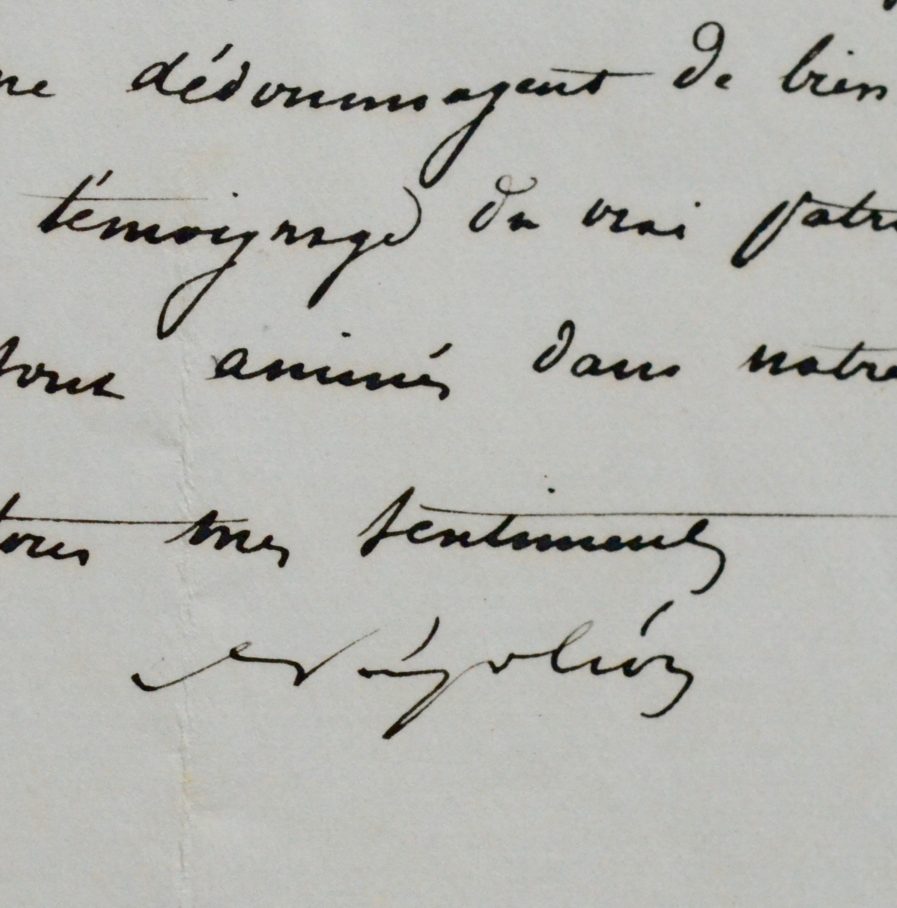 me dédommagent de bien
témoignage du vrai patri
sont animés dans notre
tous mes sentiments
Napoléon